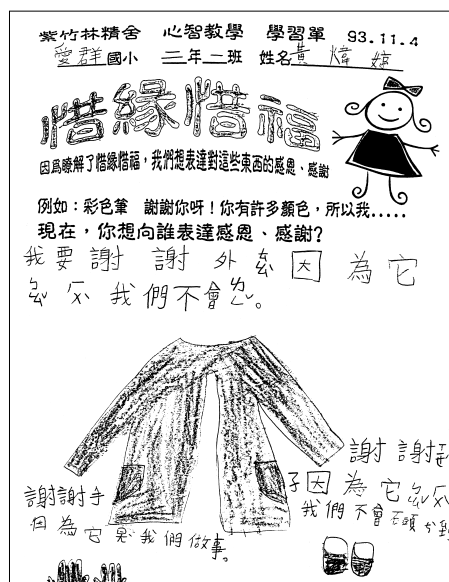 紫竹林精舍 心智教學 學習單 93.11.4
愛群國小 二年一班 姓名黃煒婷
惜緣惜福
因為瞭解了惜緣惜福，我們想表達對這些東西的感恩、感謝
例如：彩色筆 謝謝你呀！你有許多顏色，所以我.....
現在，你想向誰表達感恩、感謝？
我要謝謝外ㄊㄠˋ因為它
ㄖㄤˋ我們不會ㄌㄥˇ。
謝謝
子因為它
我們不會
謝謝手
因為它 我們做事。